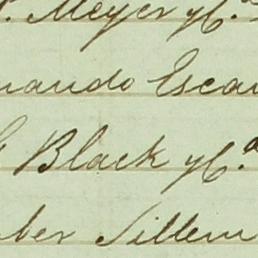 Meyer y Cª
nando Esca
Black y Cª
ber Sillem